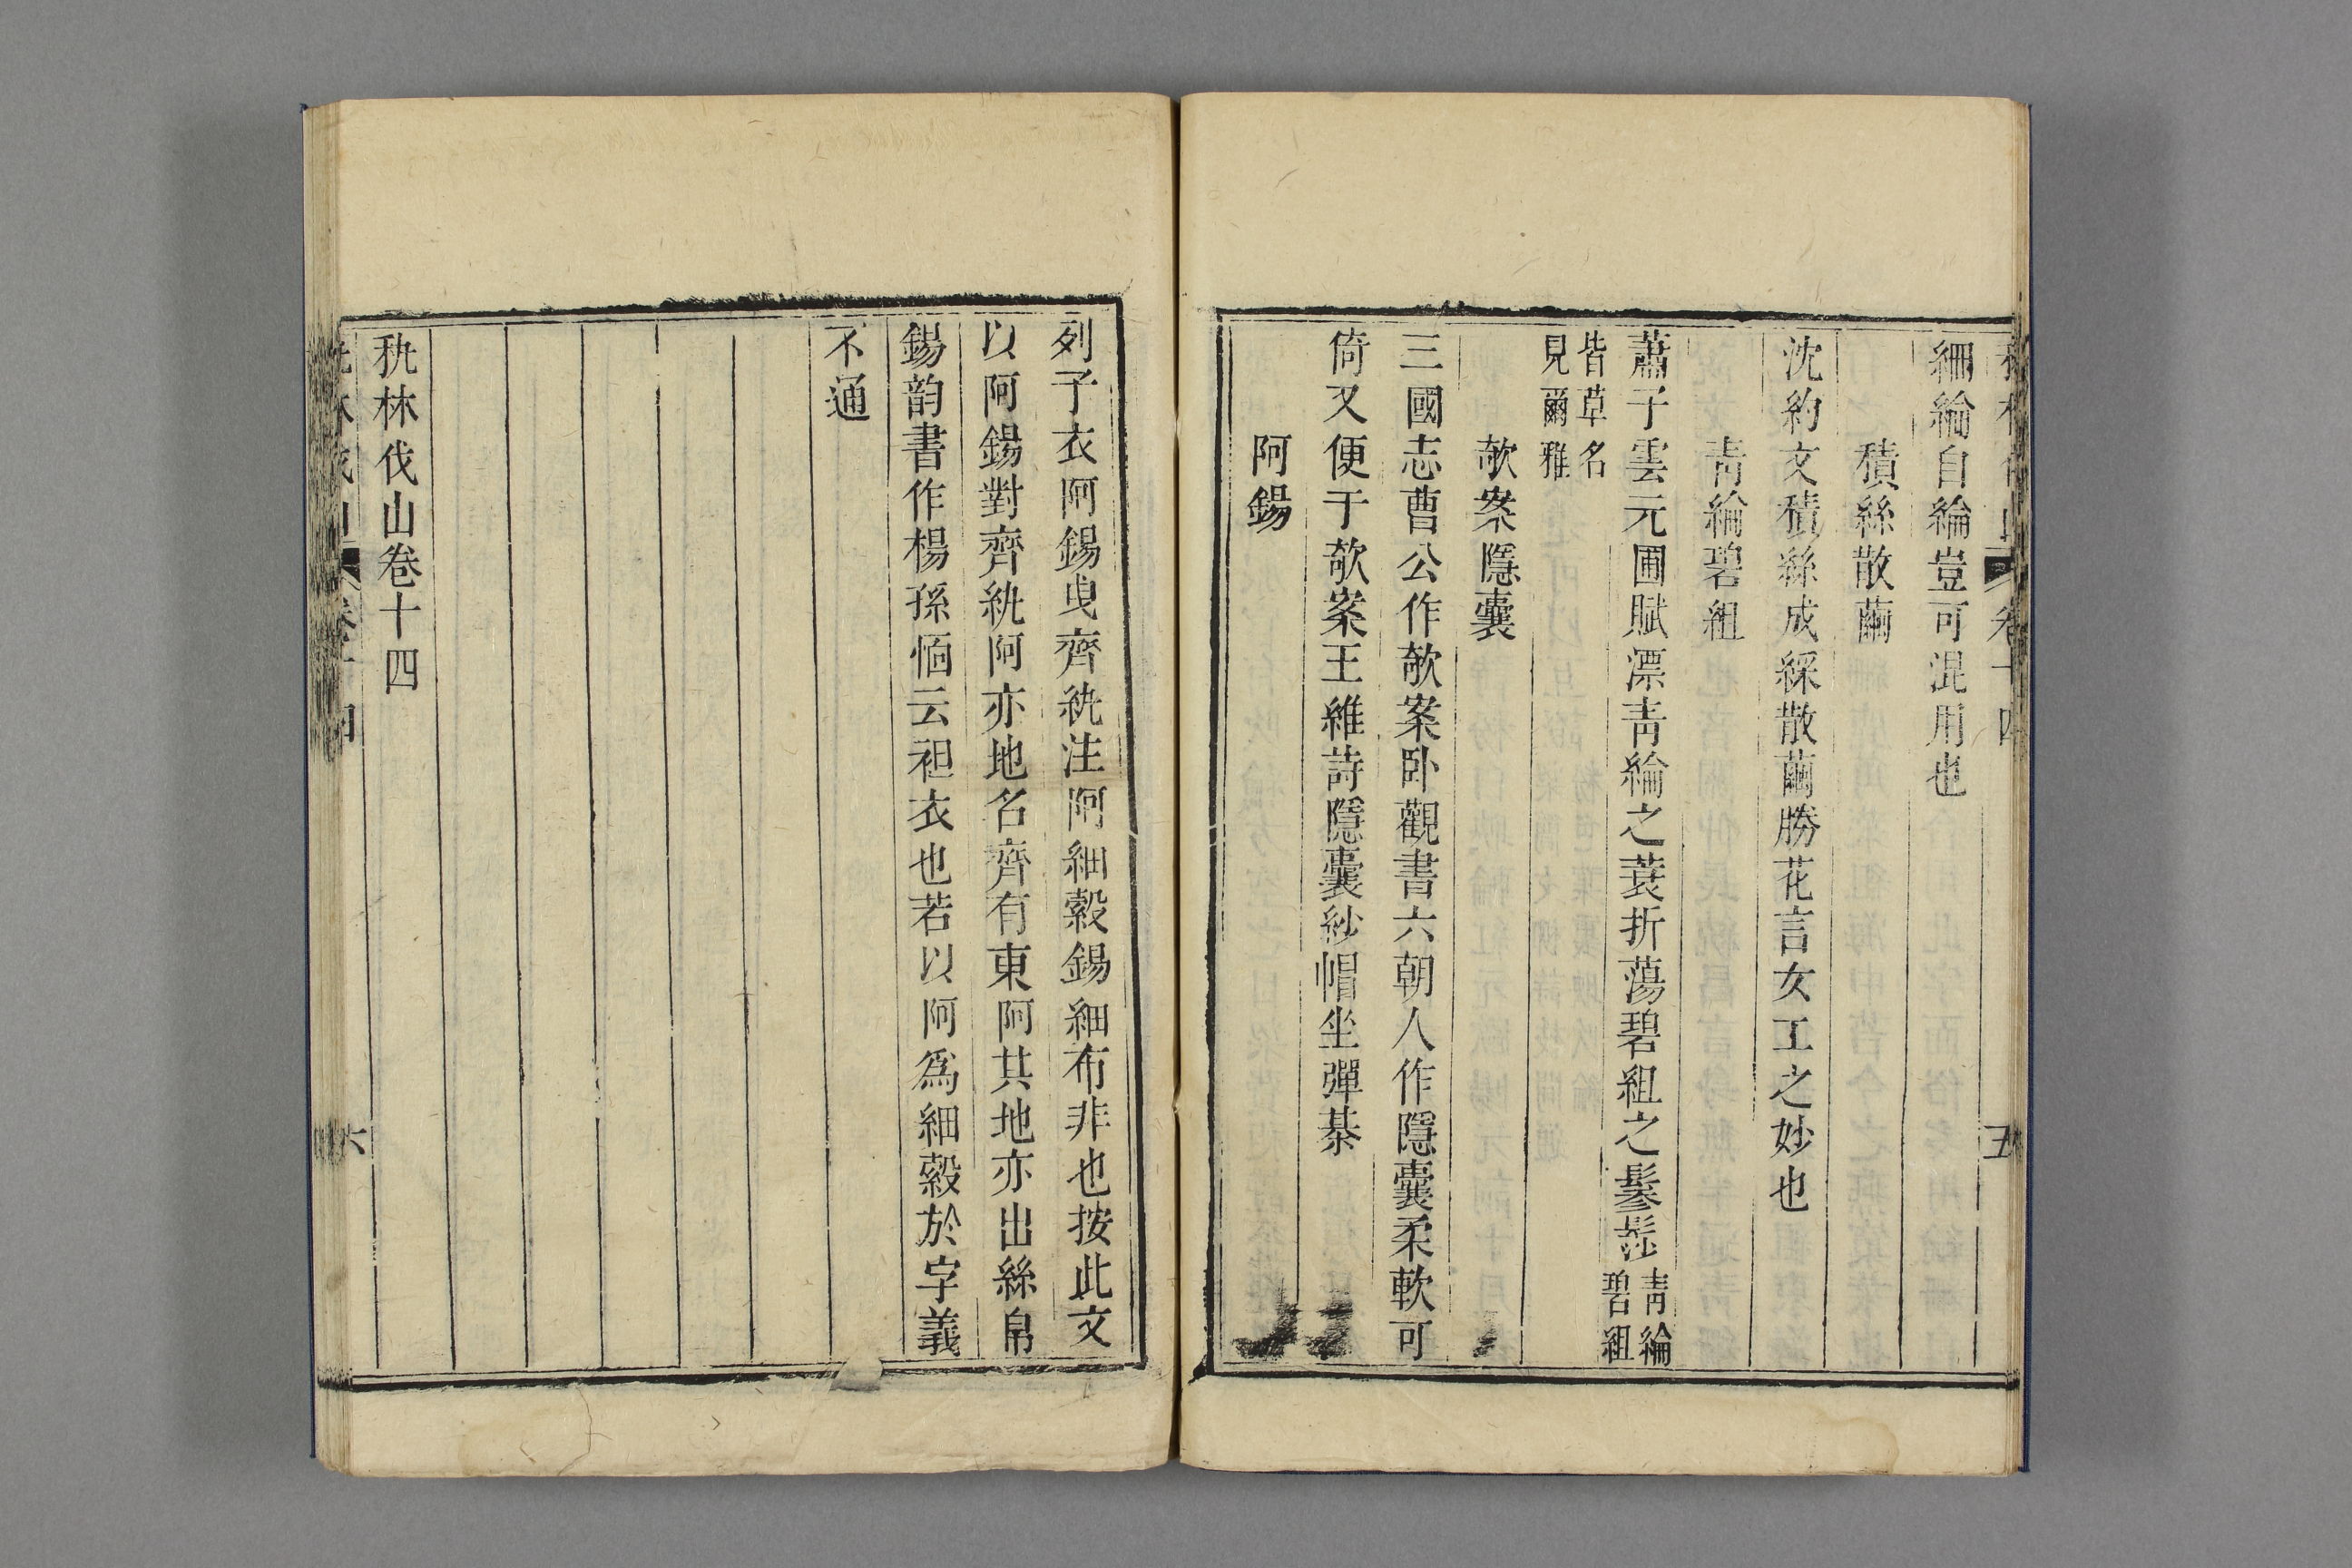 緗綸自綸豈可混用也
積絲散繭
沈約文積絲成綵散繭勝花言女工之妙也
靑綸碧組
蕭子雲元圃賦漂靑綸之蓑折蕩碧組之鬖髿靑綸碧組
皆草名見爾雅
欹案隱囊
三國志曹公作欹案卧觀書六朝人作隱囊柔軟可
倚又便于欹案王維詩隱囊紗帽坐彈棊
阿錫
列子衣阿錫曳齊紈注阿細縠錫細布非也按此文
以阿錫對齊紈阿亦地名齊有東阿其地亦出絲帛
錫韵書作楊孫愐云袒衣也若以阿爲細縠於字義
不通
秇林伐山卷十四